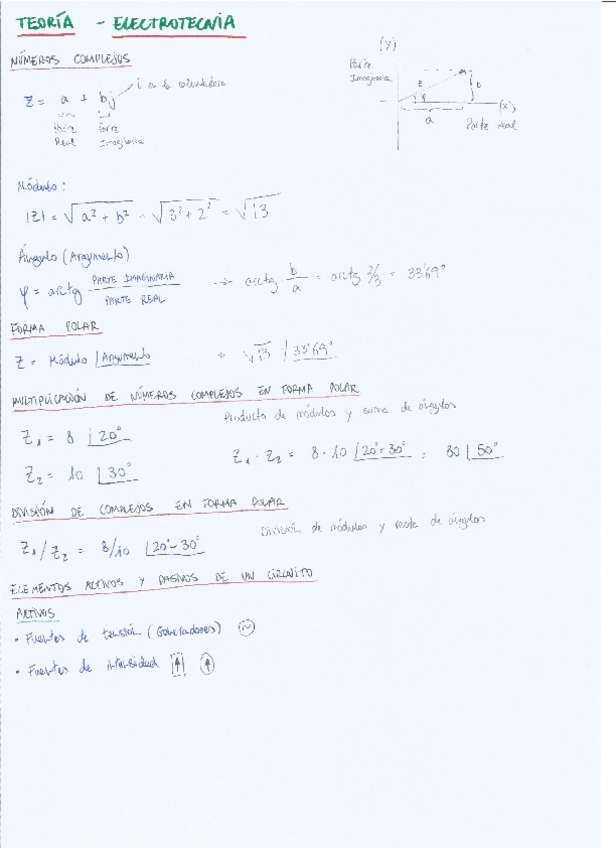 TEORÍA - ELECTROTECNIA
NÚMEROS COMPLEJOS
z = a + bj
i en la calculadora
Parte Real
Parte Imaginaria
(Y)
Parte Imaginaria
z
φ
b
a
(X)
Parte real
Módulo:
|Z| = √a² + b² = √3² + 2² = √13
Ángulo (Argumento)
φ = arctg PARTE IMAGINARIA / PARTE REAL → arctg b/a = arctg 2/3 = 33'69°
FORMA POLAR
Z = Módulo |Argumento → √13 /33'69°
MULTIPLICACIÓN DE NÚMEROS COMPLEJOS EN FORMA POLAR
Producto de módulos y suma de ángulos
Z1 = 8 |20°
Z2 = 10 |30°
Z1 · Z2 = 8 · 10 |20°+30° = 80 |50°
DIVISIÓN DE COMPLEJOS EN FORMA POLAR
División de módulos y resta de ángulos
Z1/Z2 = 8/10 |20°-30°
ELEMENTOS ACTIVOS Y PASIVOS DE UN CIRCUITO
ACTIVOS
• Fuentes de tensión (Generadores)
• Fuentes de intensidad